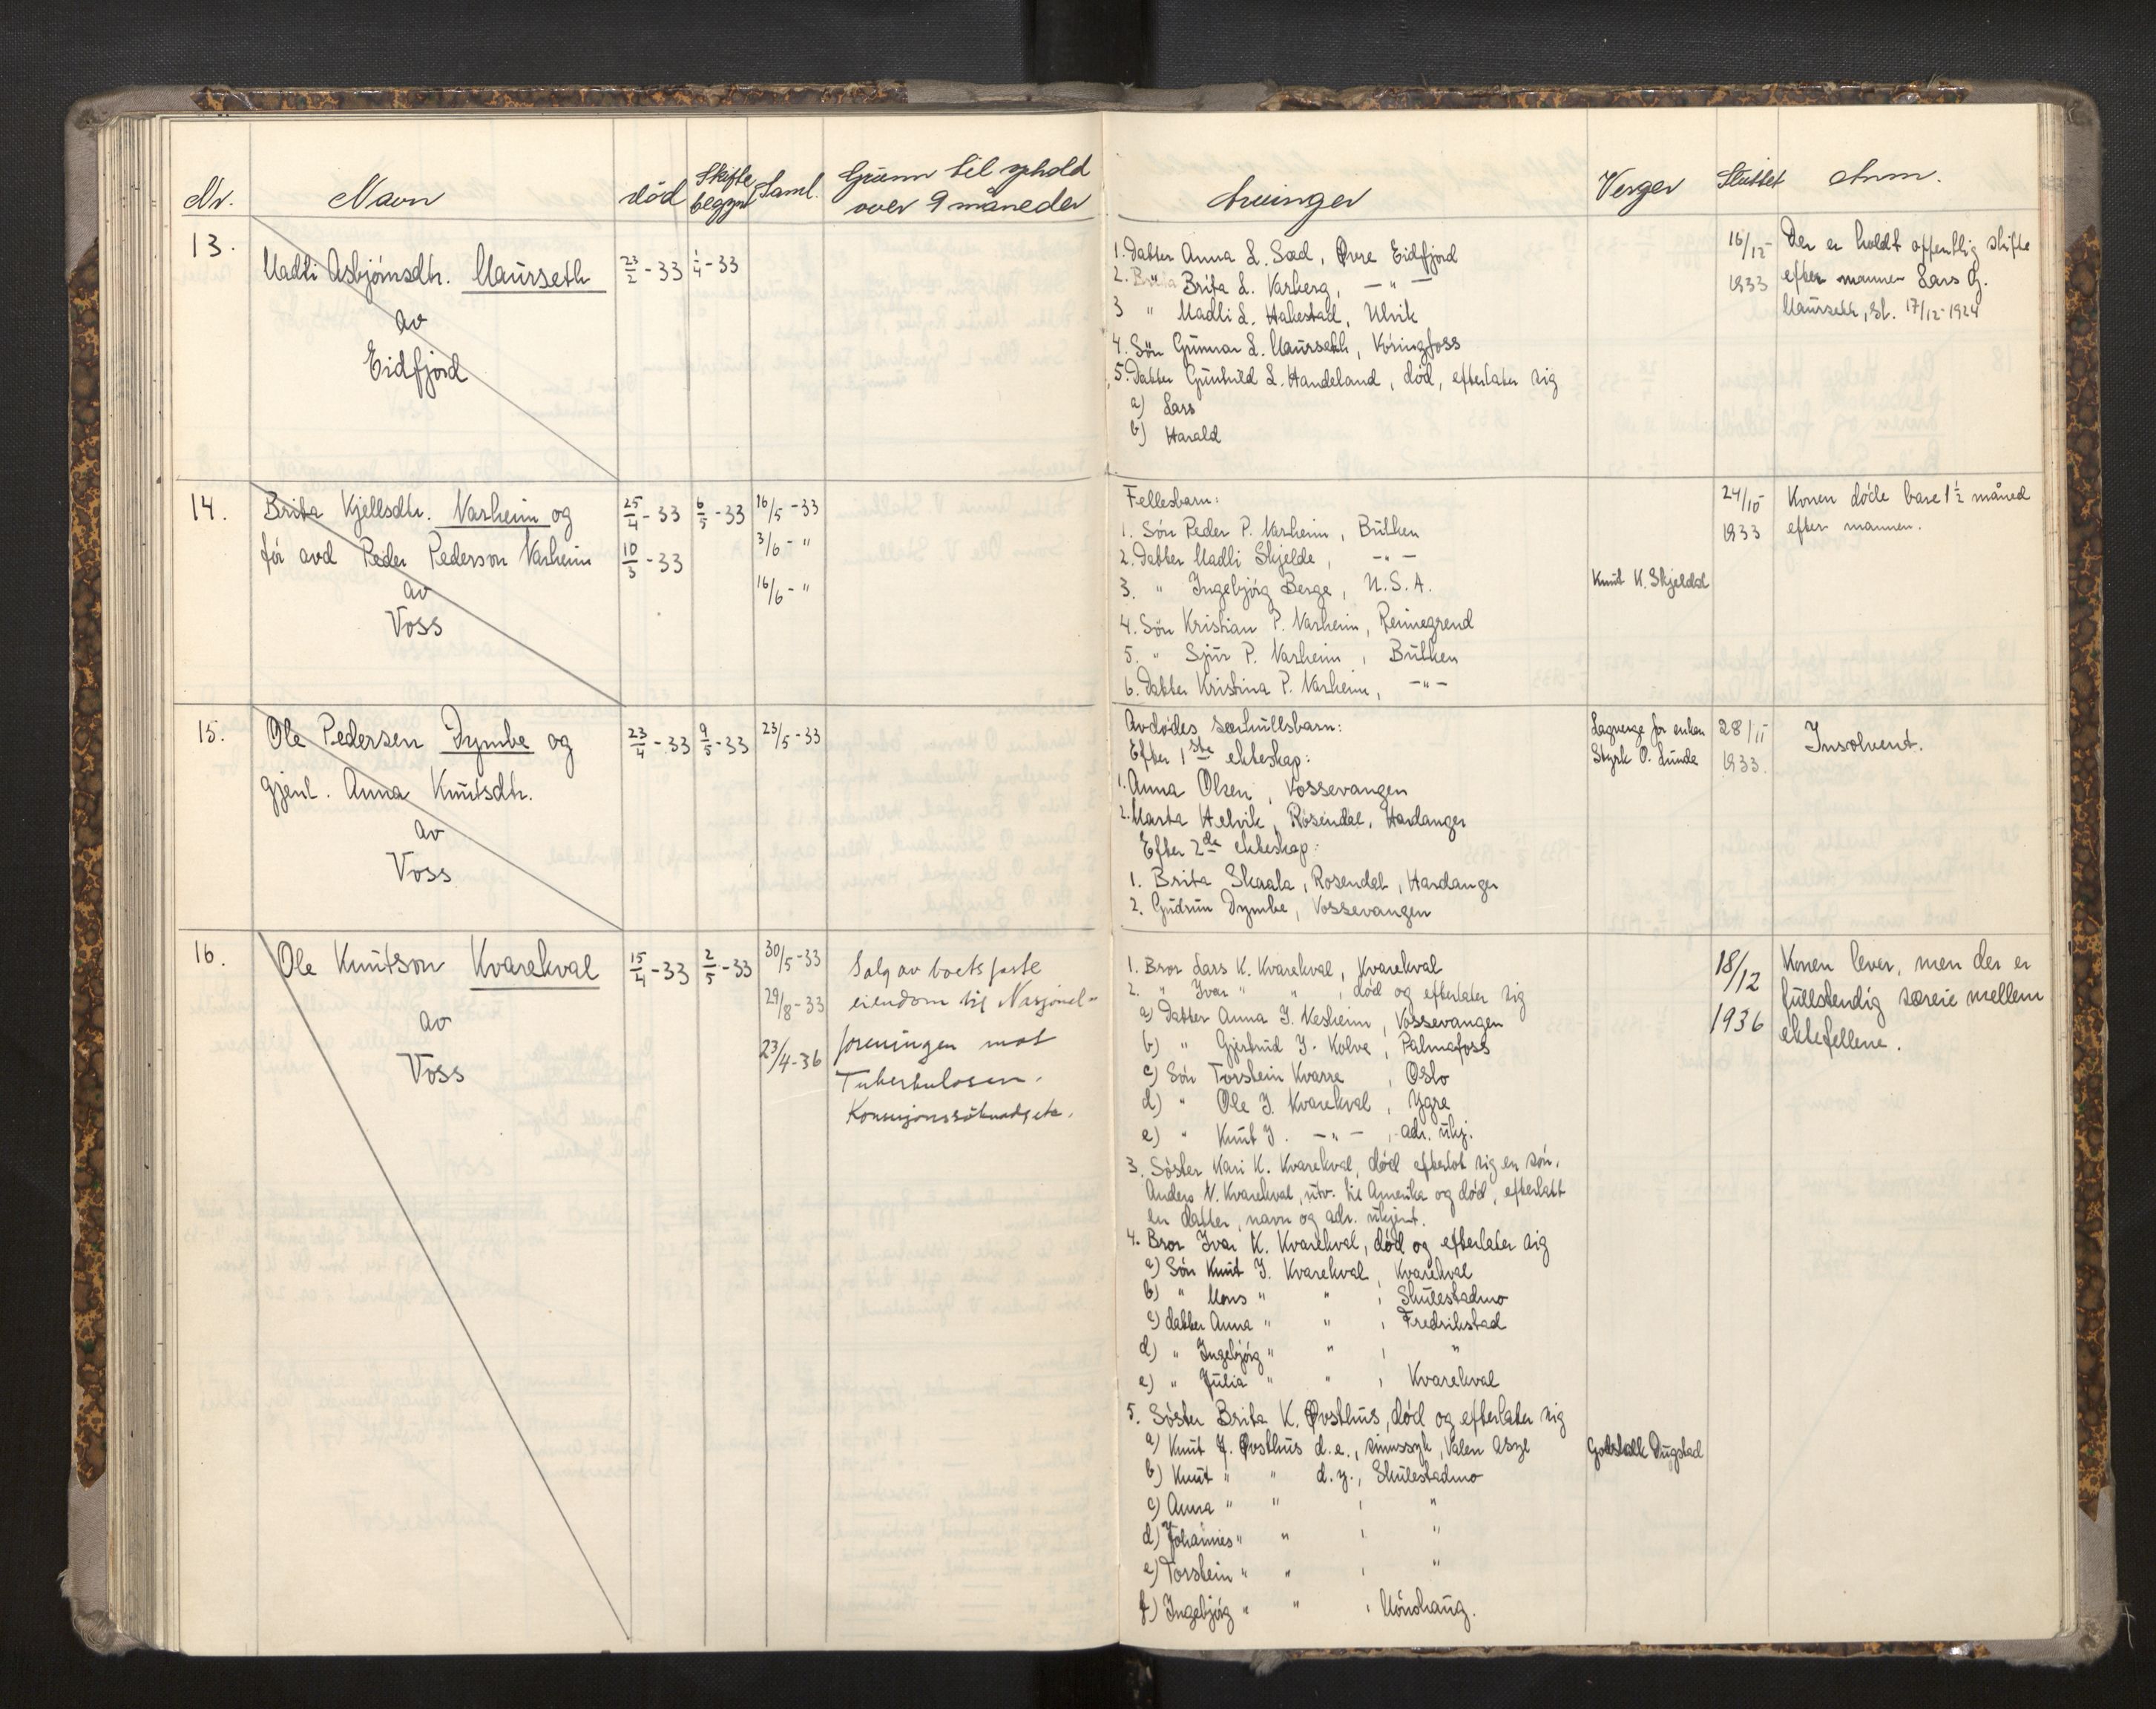 Nr. Navn død Skifte begynt Saml. Grunn til ophold over 9 måneder Arvinger Verger Sluttet Anm.
13.
Madli Asbjörnsdtr. Maurseth 23/2-33 1/4-33
av
Eidfjord
1. Datter Anna L. Sæd, Øvre Eidfjord
2. " Brita L. Varberg, -"-
3 " Madli L. Hakestad, Ulvik
4. Sön Gunnar L. Maurseth, Vöringfoss
5. Datter Gunhild L. Handeland, död, efterlater sig
a) Lars
b) Harald
16/12-1933
Der er holdt offentlig skifte
efter mannen Lars G.
Maurseth, sl. 17/12-1924
14.
Brita Kjellsdtr. Varheim og 25/4-33 6/5-33 16/5-33
för avd Peder Pederson Varheim 10/3-33 3/6-"
av 16/6-"
Voss
Fellesbarn:
1. Sön Peder P. Varheim, Bulken
2. Datter Madli Skjelde, -"-
3. " Ingebjörg Berge, U.S.A. Knut K. Skjeldal
4. Sön Kristian P. Varheim, Rennegrend
5. " Sjur P. Varheim, Bulken
6. Datter Kristina P. Varheim, -"-
24/10
1933
Konen döde bare 1 1/2 måned
efter mannen.
15.
Ole Pedersen Dymbe og 23/4-33 9/5-33 23/5-33
gjenl. Anna Knutsdtr.
av
Voss
Avdödes særkullsbarn:
Efter 1ste ekteskap:
1. Anna Olsen, Vossevangen
2. Marta Helvik, Rosendal, Hardanger
Efter 2de ekteskap:
1. Brita Skaala, Rosendal, Hardanger
2. Gudrun Dymbe, Vossevangen
Lagverge for enken
Styrk O. Lunde
28/11
1933.
Insolvent.
16.
Ole Knutson Kvarekval 15/4-33 2/5-33 30/5-33
av 29/8-33
Voss 23/4-36
Salg av boets faste
eiendom til Nasjonal-
foreningen mot
Tuberkulosen.
Konsesjonssöknad etc.
1. Bror Lars K. Kvarekval, Kvarekval
2. " Ivar " " , död og efterlater sig
a) Datter Anna I. Nesheim, Vossevangen
b) " Gjertrud I. Kolve, Palmafoss
c) Sön Torstein Kvarre, Oslo
d) " Ole I. Kvarekval, Ygre
e) " Knut I. -"-, adr. ukj.
3. Söster Kari K. Kvarekval, död efterlot sig en sön.
Anders N. Kvarekval, utv. til Amerika og död, efterlatt
en datter, navn og adr. ukjent.
4. Bror Ivar K. Kvarekval, död og efterlater sig
a) Sön Knut I. Kvarekval, Kvarekval
b) " Mons " " , Skulestadmo
c) datter Anna " " , Fredrikstad
d) " Ingebjörg " " , "
e) " Julia " " , Kvarekval
5. Söster Brita K. Øvsthus, död og efterlater sig
a) Knut J. Øvsthus d.e., sinnssyk, Valen Asyl Godskalk Dugstad
b) Knut " " d.y., Skulestadmo
c) Anna " " , "
d) Johannes " " , "
e) Torstein " " , "
f) Ingebjörg " " , Mönshaug.
18/12
1936
Konen lever, men der er
fullstendig særeie mellem
ektefellene.